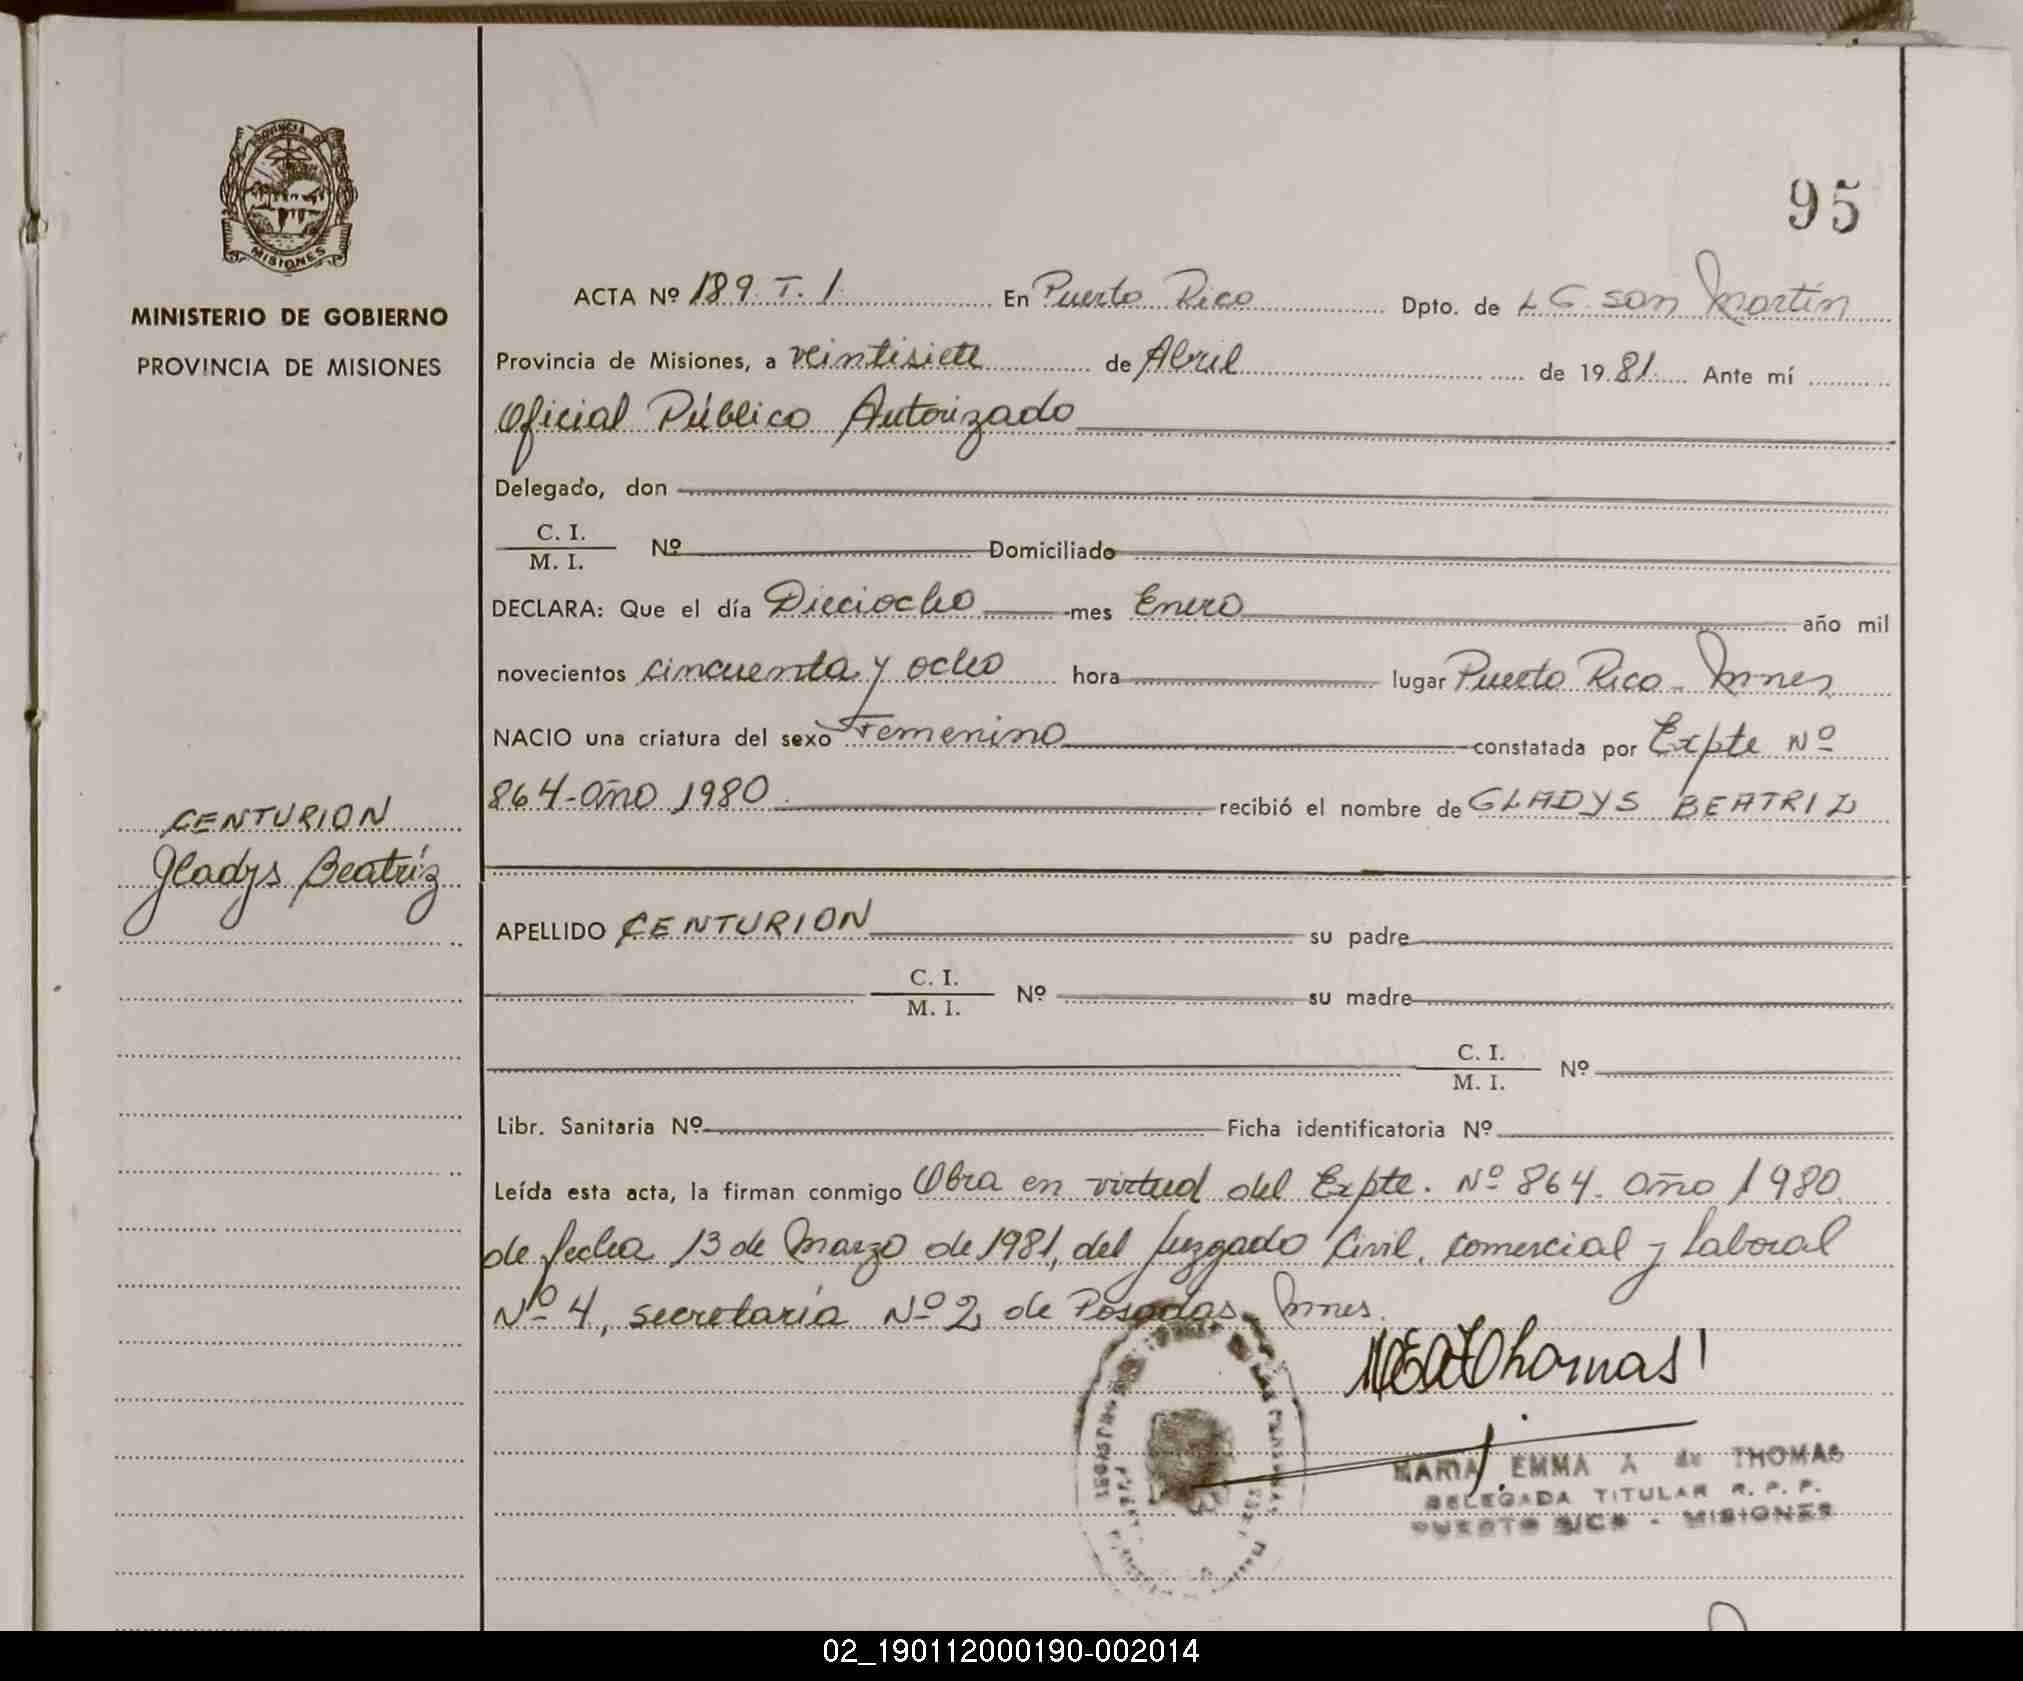 PROVINCIA DE
MISIONES
MINISTERIO DE GOBIERNO
PROVINCIA DE MISIONES
CENTURION
Gladys Beatríz
95
ACTA Nº 189 T. 1 En Puerto Rico Dpto. de L G. San Martín
Provincia de Misiones, a veintisiete de Abril de 1981 Ante mí
Oficial Público Autorizado
Delegado, don
C. I.
M. I. Nº Domiciliado
DECLARA: Que el día Dieciocho mes Enero año mil
novecientos cincuenta y ocho hora lugar Puerto Rico - Mnes
NACIO una criatura del sexo Femenino constatada por Expte Nº
864-año 1980 recibió el nombre de GLADYS BEATRIZ
APELLIDO CENTURION su padre
C. I.
M. I. Nº su madre
C. I.
M. I. Nº
Libr. Sanitaria Nº Ficha identificatoria Nº
Leída esta acta, la firman conmigo Obra en virtud del Expte. Nº 864. año 1980
de fecha 13 de Marzo de 1981, del Juzgado Civil, Comercial y Laboral
Nº 4, secretaría Nº 2 de Posadas Mnes.
Thomas
MARIA EMMA A de THOMAS
DELEGADA TITULAR R. P. P.
PUERTO RICO - MISIONES
02_190112000190-002014